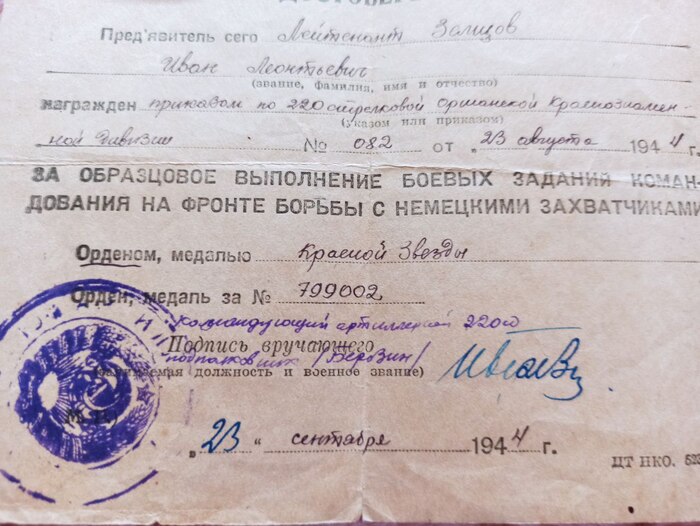 Пред'явитель сего Лейтенант Залцов
Иван Леонтьевич
(звание, фамилия, имя и отчество)
награжден приказом по 220 стрелковой Оршанской Краснознамен-
(указом или приказом)
ной дивизии № 082 от „23 августа 1944 г.
ЗА ОБРАЗЦОВОЕ ВЫПОЛНЕНИЕ БОЕВЫХ ЗАДАНИЙ КОМАН-
ДОВАНИЯ НА ФРОНТЕ БОРЬБЫ С НЕМЕЦКИМИ ЗАХВАТЧИКАМИ
Орденом, медалью Красной Звезды
Орден, медаль за № 799002
Командующий артиллерией 220 сд
Подпись вручающего
подполковник /Березин/
(занимаемая должность и военное звание)
М. П.
„23 “ сентября 1944 г.
ЦТ НКО. 523